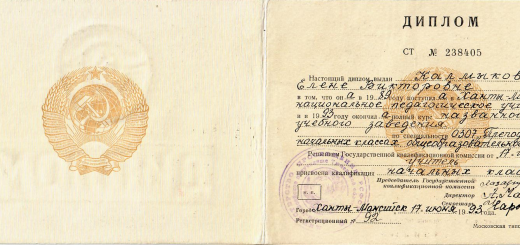 ДИПЛОМ
СТ № 238405
Настоящий диплом выдан Калмыков
Елене Викторовне
в том, что он а в 1989 году поступил а в Ханты-Ма
национальное педагогическое учи
и в 1993 году окончил а полный курс названно
учебного заведения
по специальности 0307 „Препод
начальных классах общеобразовательно
Решением Государственной квалификационной комиссии от 17
учитель
присвоена квалификация
начальных клас
Председатель Государственной
квалификационной комиссии
Директор
Секретарь
Город Ханты-Мансийск 17 июня 1993
Регистрационный № 92
Московская тип